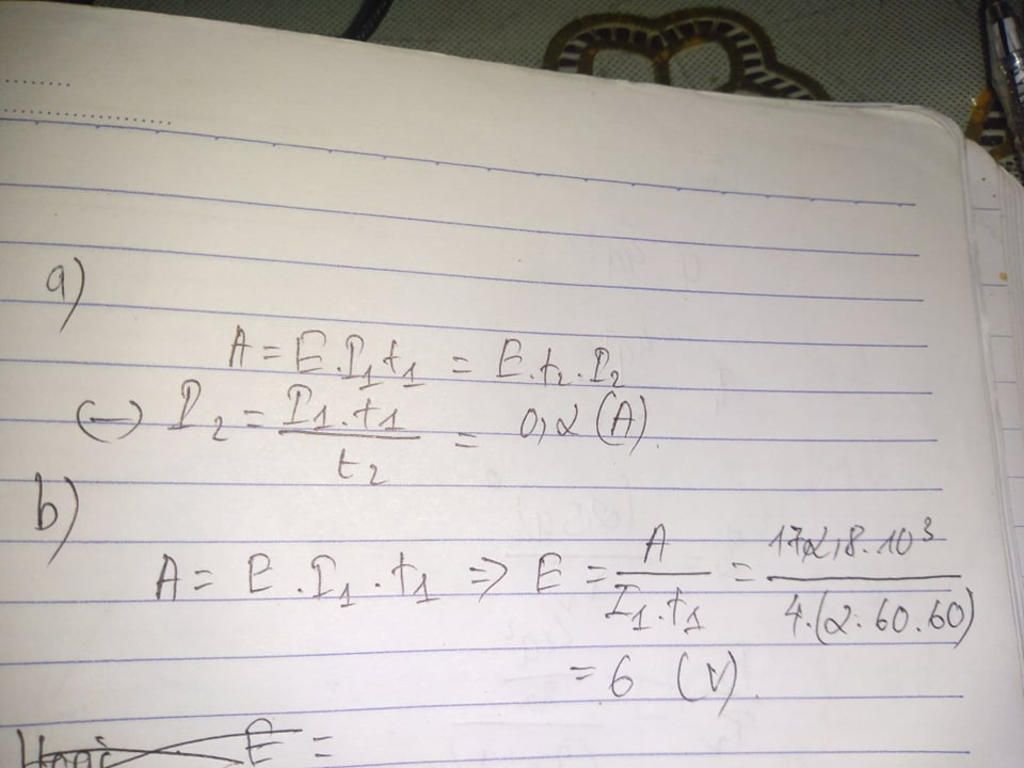 a)
A = E.I₁t₁ = E.t₂.I₂
(–) I₂ = \frac{I₁.t₁}{t₂} = 0,2 (A).
b)
A = E.I₁.t₁ => E = \frac{A}{I₁.t₁} = \frac{172,8.10³}{4.(2.60.60)}
= 6 (V).
E =